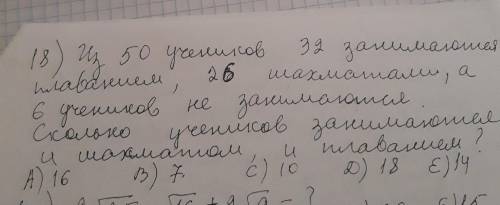 18) Из 50 учеников 32 занимаются
плаванием, 26 шахматами, а
6 учеников не занимаются.
Сколько учеников занимаются
и шахматом, и плаванием?
А) 16 В) 7 С) 10 Д) 18 Е) 14